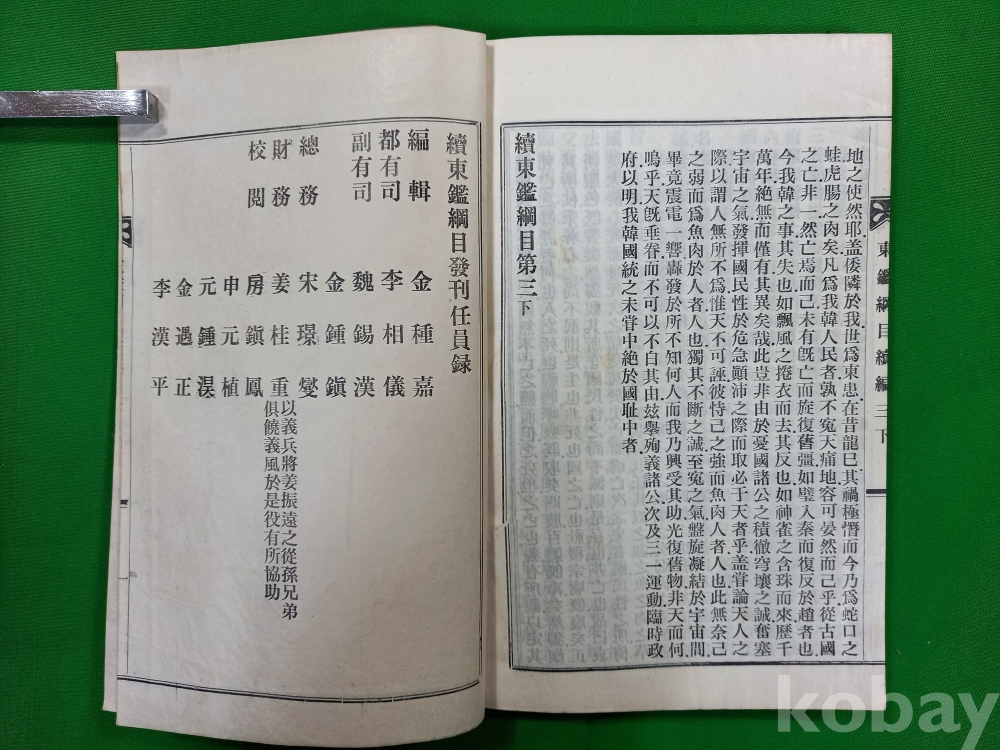 東鑑綱目續編 三下
地之使然耶盖倭隣於我世爲東患在昔龍巳其禍極憯而今乃爲蛇口之
蛙虎腸之肉矣凡爲我韓人民者孰不寃天痛地容可晏然而已乎從古國
之亡非一然亡焉而已未有旣亡而旋復舊疆如璧入秦而復反於趙者也
今我韓之事其失也如飄風之捲衣而去其反也如神雀之含珠而來歷千
萬年絶無而僅有其異矣哉此豈非由於憂國諸公之積徹穹壤之誠奮塞
宇宙之氣發揮國民性於危急顚沛之際而取必于天者乎盖甞論天人之
際以謂人無所不爲惟天不可誣彼恃己之強而魚肉人者人也此無奈己
之弱而爲魚肉於人者人也獨其不斷之誠至寃之氣盤旋凝結於宇宙間
畢竟震電一響轟發於所不知何人而我乃興受其助光復舊物非天而何
嗚乎天旣垂眷而不可以不白其由玆擧殉義諸公次及三一運動臨時政
府以明我韓國統之未甞中絶於國耻中者
續東鑑綱目第三下
續東鑑綱目發刊任員録
編輯 金種嘉
都有司 李相儀
副有司 魏錫漢
金鍾鎭
總務 宋璟燮
財務 姜桂重 以義兵將姜振遠之從孫兄弟
俱饒義風於是役有所協助
校閲 房鎭鳳
申元植
元鍾
金遇正
李漢平
kobay